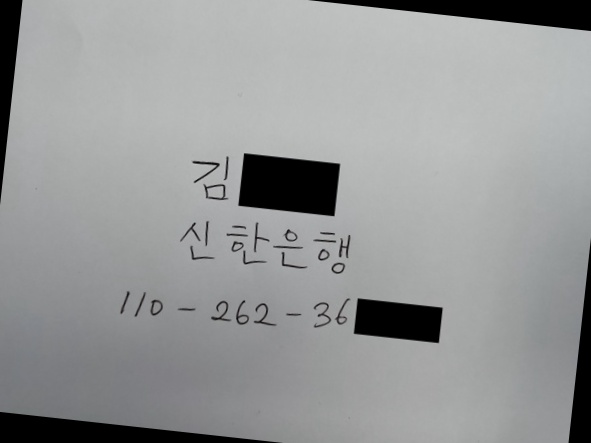 김
신한은행
110-262-36